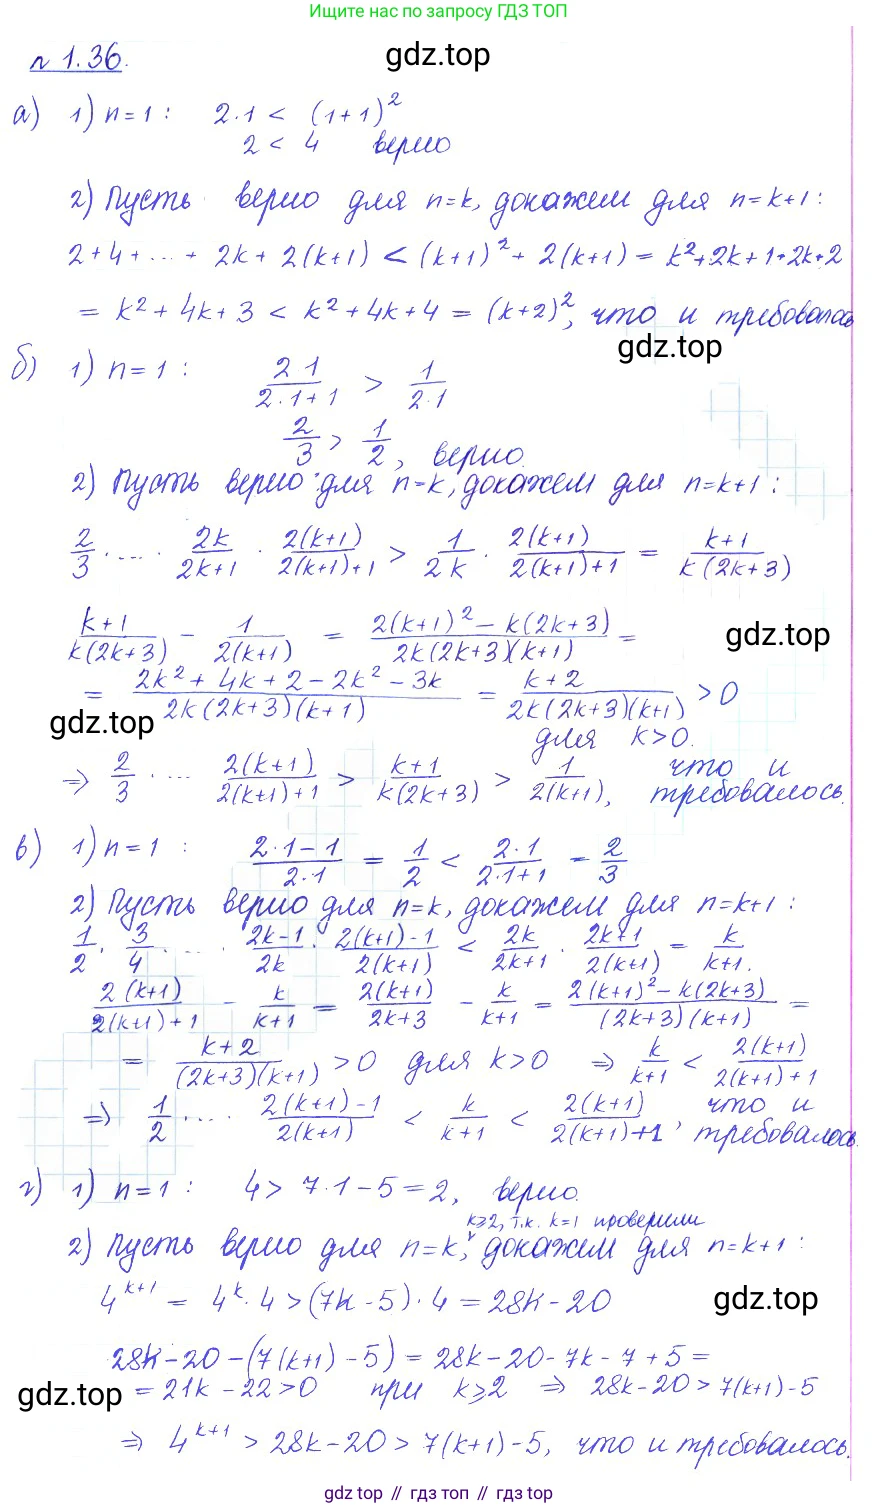 Ищите по запросу ГДЗ ТОП
n 1.36.
gdz.top
а) 1) n=1 : 2·1 < (1+1)²
2 < 4 верно
2) Пусть верно для n=k, докажем для n=k+1 :
2+4+...+ 2k+2(k+1) < (k+1)²+ 2(k+1) = k²+2k+1+2k+2
= k²+4k+3 < k²+4k+4 = (k+2)², что и требовалось
gdz.top
б) 1) n=1 : 2·1/(2·1+1) > 1/(2·1)
2/3 > 1/2, верно.
2) Пусть верно для n=k, докажем для n=k+1 :
2/3 · ... · 2k/(2k+1) · 2(k+1)/(2(k+1)+1) > 1/(2k) · 2(k+1)/(2(k+1)+1) = (k+1)/(k(2k+3))
(k+1)/(k(2k+3)) - 1/(2(k+1)) = (2(k+1)²-k(2k+3))/(2k(2k+3)(k+1)) =
gdz.top
= (2k²+4k+2-2k²-3k)/(2k(2k+3)(k+1)) = (k+2)/(2k(2k+3)(k+1)) > 0
gdz.top
для k>0.
⇒ 2/3 · ... 2(k+1)/(2(k+1)+1) > (k+1)/(k(2k+3)) > 1/(2(k+1)), что и требовалось.
в) 1) n=1 : (2·1-1)/(2·1) = 1/2 < 2·1/(2·1+1) = 2/3
2) Пусть верно для n=k, докажем для n=k+1 :
1/2 · 3/4 · ... · (2k-1)/(2k) · (2(k+1)-1)/(2(k+1)) < 2k/(2k+1) · (2k+1)/(2(k+1)) = k/(k+1).
2(k+1)/(2(k+1)+1) - k/(k+1) = 2(k+1)/(2k+3) - k/(k+1) = (2(k+1)²-k(2k+3))/((2k+3)(k+1)) =
= (k+2)/((2k+3)(k+1)) > 0 для k>0 ⇒ k/(k+1) < 2(k+1)/(2(k+1)+1)
⇒ 1/2 · ... (2(k+1)-1)/(2(k+1)) < k/(k+1) < 2(k+1)/(2(k+1)+1), что и требовалось.
г) 1) n=1 : 4 > 7·1-5=2, верно.
k≥2, т.к. k=1 проверили
2) Пусть верно для n=k, докажем для n=k+1 :
4^(k+1) = 4^k·4 > (7k-5)·4 = 28k-20
gdz.top
28k-20-(7(k+1)-5) = 28k-20-7k-7+5 =
= 21k-22>0 при k≥2 ⇒ 28k-20>7(k+1)-5
gdz.top
⇒ 4^(k+1) > 28k-20 > 7(k+1)-5, что и требовалось.
gdz.top // гдз топ // гдз.top